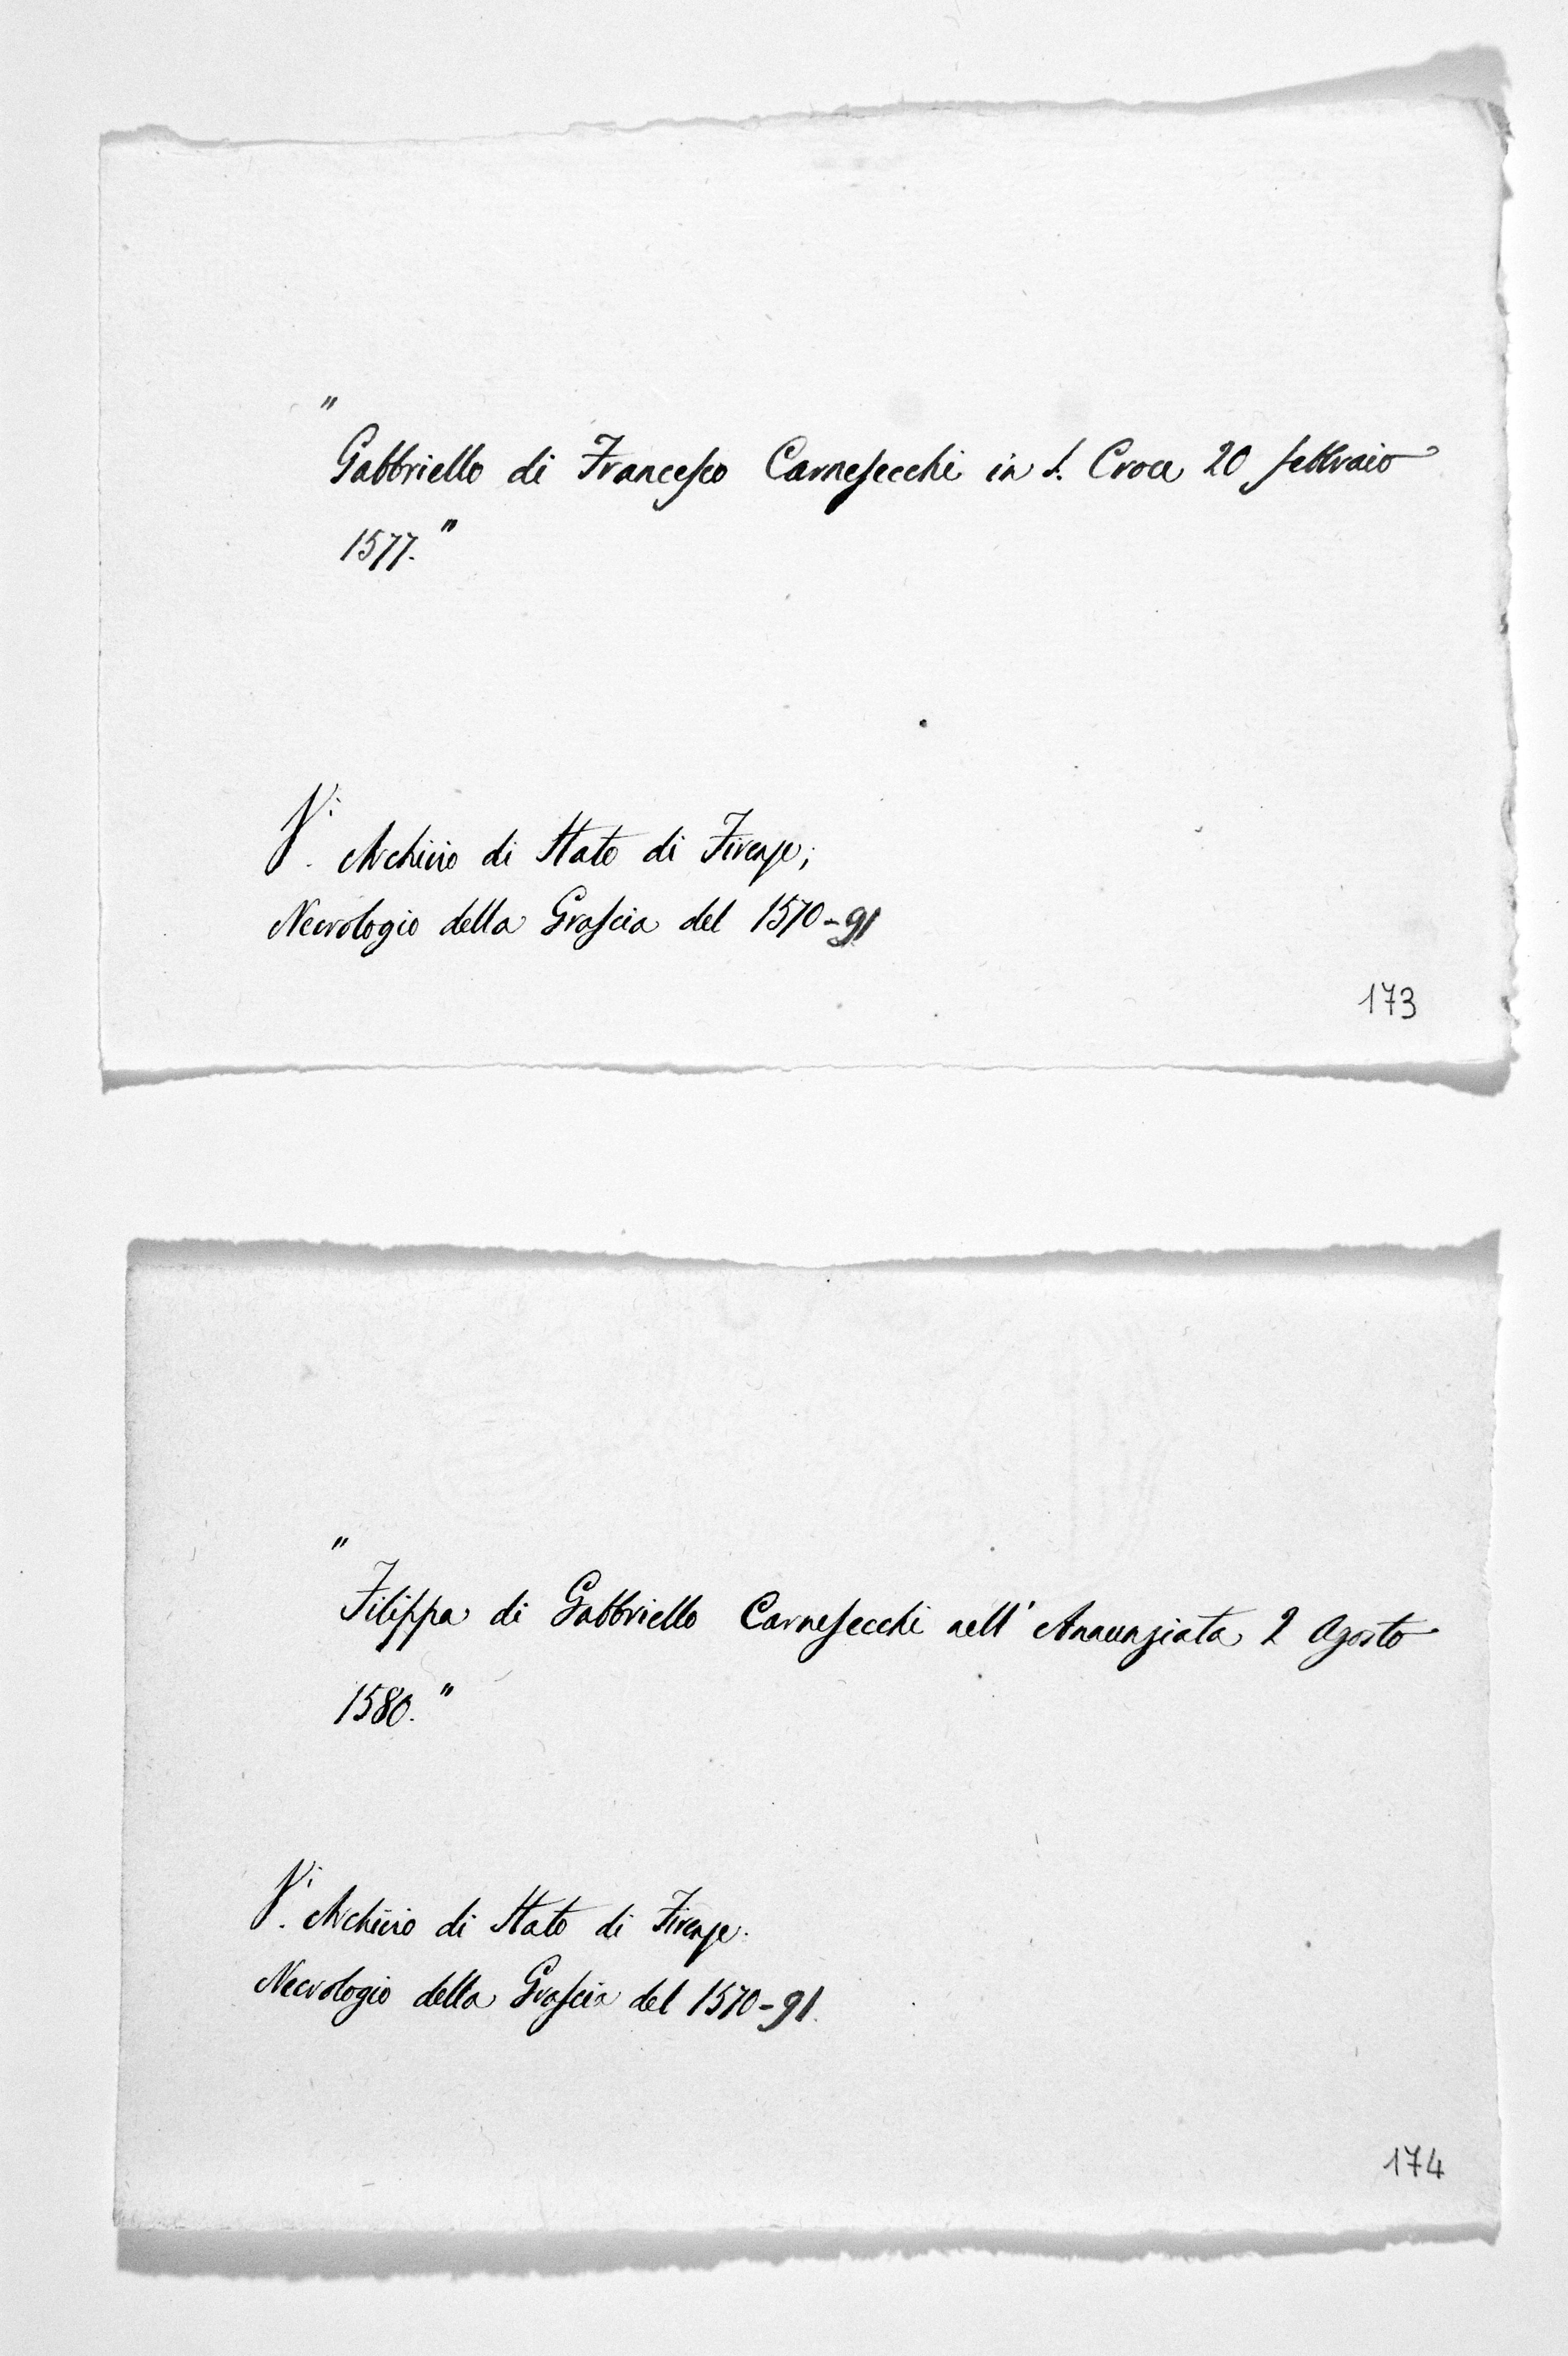 "
Gabbriello di Francesco Carnesecchi in S. Croce 20 febbraio
1577."
V. Archivio di Stato di Firenze;
Necrologio della Grascia del 1570-91
173
"
Filippa di Gabbriello Carnesecchi nell' Annunziata 2 Agosto
1580."
V. Archivio di Stato di Firenze.
Necrologio della Grascia del 1570-91.
174